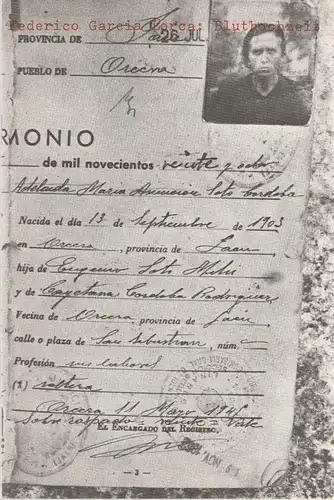 Federico García Lorca: Bluthochzeit
PROVINCIA DE Jaén 26 JUL
PUEBLO DE Orcera
RMONIO
de mil novecientos veinte y ocho
Adelaida María Asunción Soto Córdoba
Nacida el día 13 de Septiembre de 1903
en Orcera, provincia de Jaén
hija de Eugenio Soto
y de Cayetana Córdoba Rodríguez
Vecina de Orcera, provincia de Jaén,
calle o plaza de San Sebastian, núm.
Profesión sus labores
(1.) soltera
Orcera 11 Mayo 194
Sobre raspado veinte = Vale
EL ENCARGADO DEL REGISTRO,
— 3 —